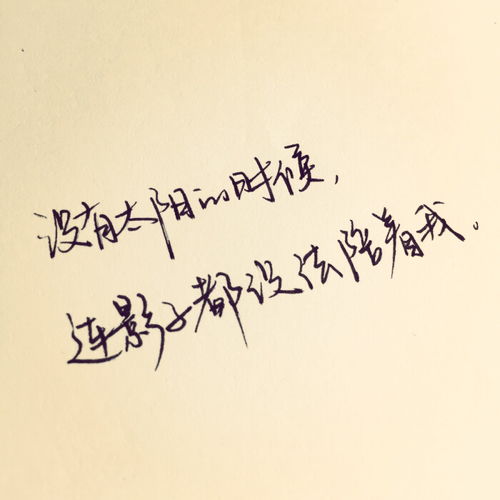 没有太阳的时候,
连影子都没法陪着我。